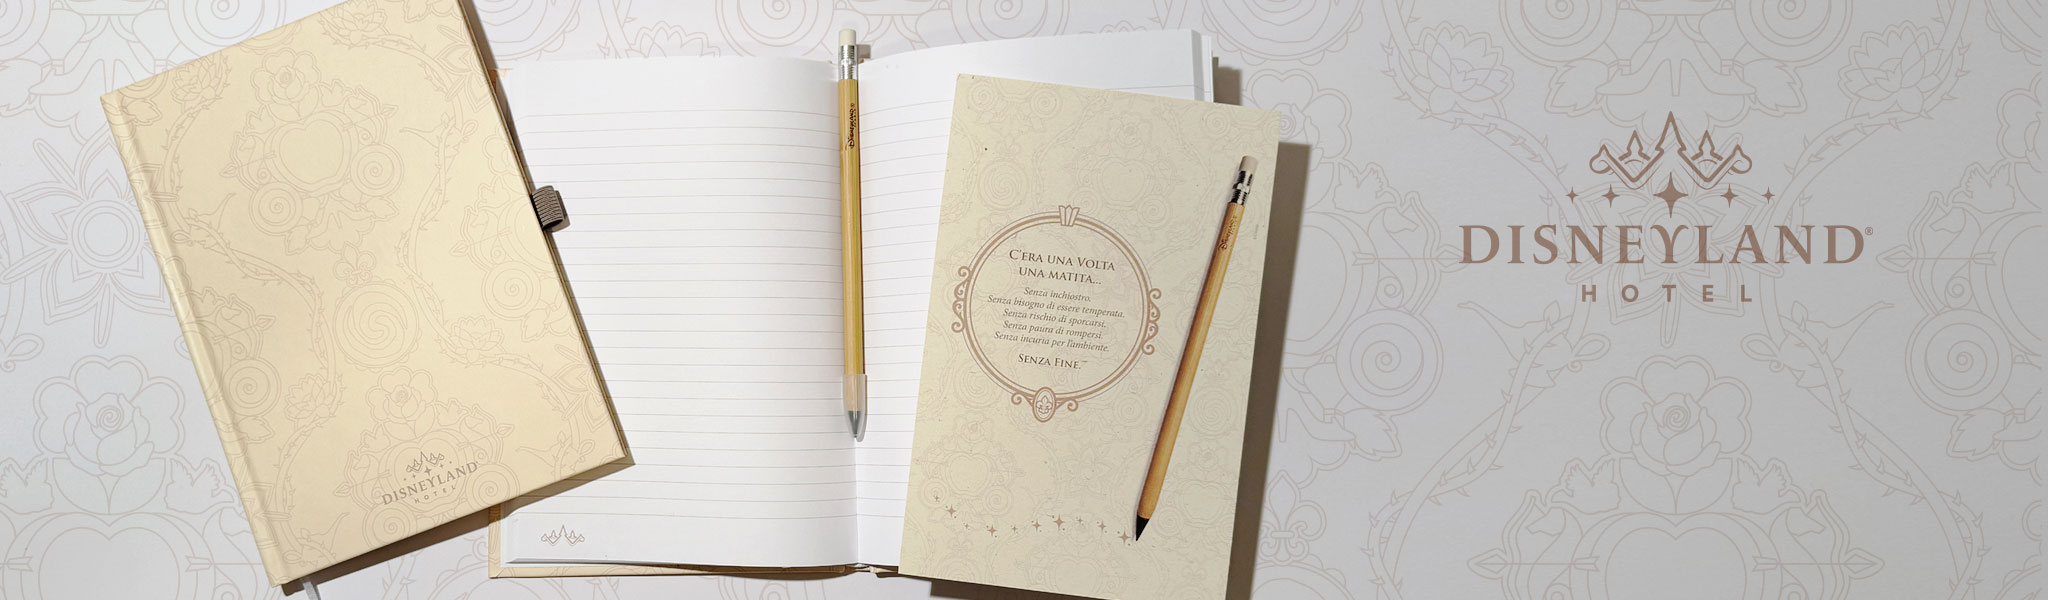 DISNEYLAND
HOTEL
Disneyland®
C'ERA UNA VOLTA
UNA MATITA...
Senza inchiostro.
Senza bisogno di essere temperata.
Senza rischio di sporcarsi.
Senza paura di rompersi.
Senza incuria per l'ambiente.
SENZA FINE.™
Disneyland®
DISNEYLAND®
HOTEL